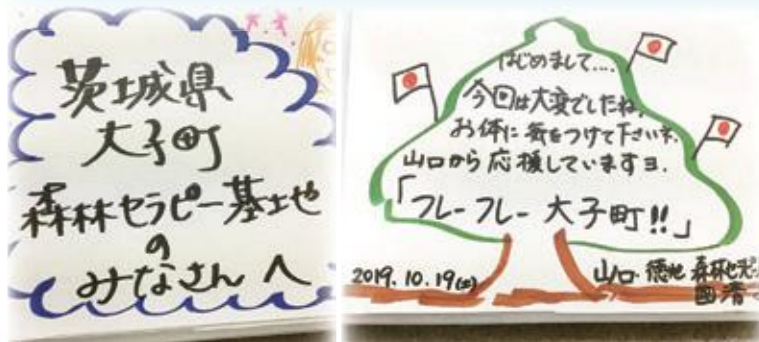 茨城県
大子町
森林セラピー基地
の
みなさんへ
はじめまして....
今回は大変でしたね。
お体に気をつけて下さいネ.
山口から応援していますヨ.
「フレーフレー 大子町!!」
2019.10.19(土)
山口・徳地 森林セラピー